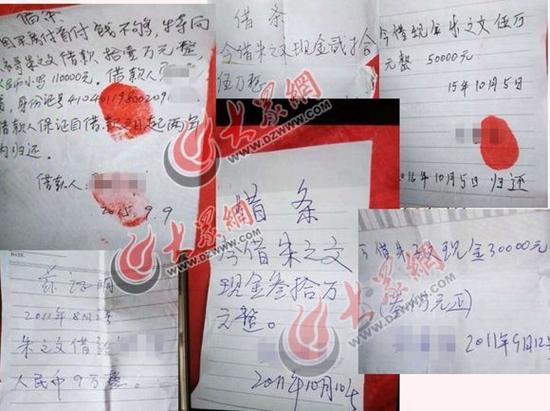 借条
因买房付首付钱不够，特向
朱之文借款 拾壹万元整，
人民币小写 110000元。借款人
身份证号
借款人保证自借款之日起两年
内归还。
借款人：
2015. 9. 9
借 条
今借朱之文现金贰拾
伍万整
今借现金朱之文伍万
元整 50000元
15年10月5日
2016年10月5日归还
证明
2011年8月2号
朱之文借给
人民币9万整。
借 条
今借朱之文
现金叁拾万
元整。
2011年10月10号
今借朱之文现金30000元
(叁万元正)
2011年9月12号
大众網
WWW.DZWWW.COM
大众網
WWW.DZWWW.COM
大众網
WWW.DZWWW.COM